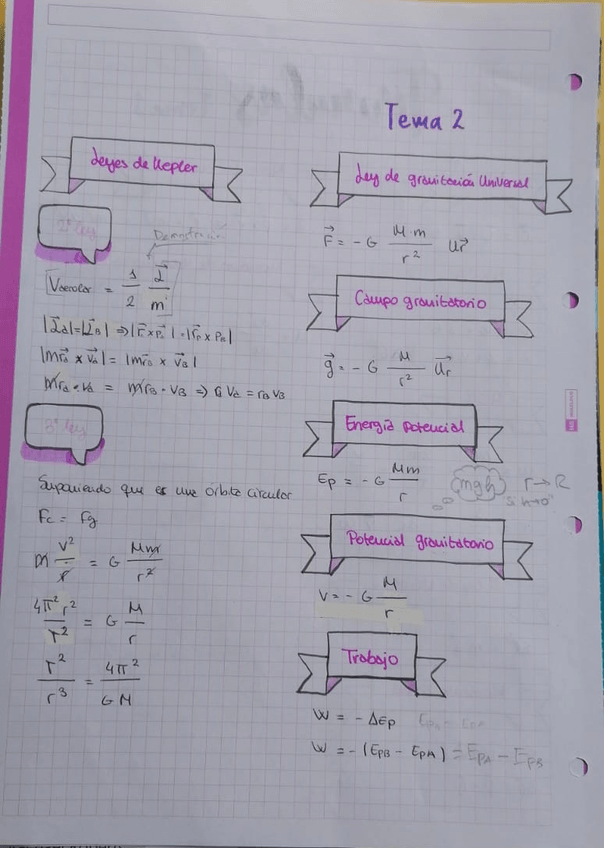 Tema 2
Leyes de Kepler
2ª ley
Demostración
Vaerolar = 1/2 L⃗/m
|L⃗a| = |L⃗B| ⇒ |r⃗ x Pa| · |r⃗B x PB|
|mr⃗a x v⃗a| = |mr⃗B x v⃗B|
mra · va = mrB · vB ⇒ ra va = rB vB
3ª ley
Suponiendo que es una órbita circular
Fc = Fg
m v²/r = G Mm/r²
4π² r²/T² = G M/r
T²/r³ = 4π²/GM
Ley de gravitación Universal
F⃗ = - G M·m/r² u⃗r
Campo gravitatorio
g⃗ = - G M/r² u⃗r
Energía potencial
Ep = - G Mm/r
mgh
r → R
Si h→0
Potencial gravitatorio
V = - G M/r
Trabajo
W = - ΔEp
W = - (EpB - EpA) = EpA - EpB